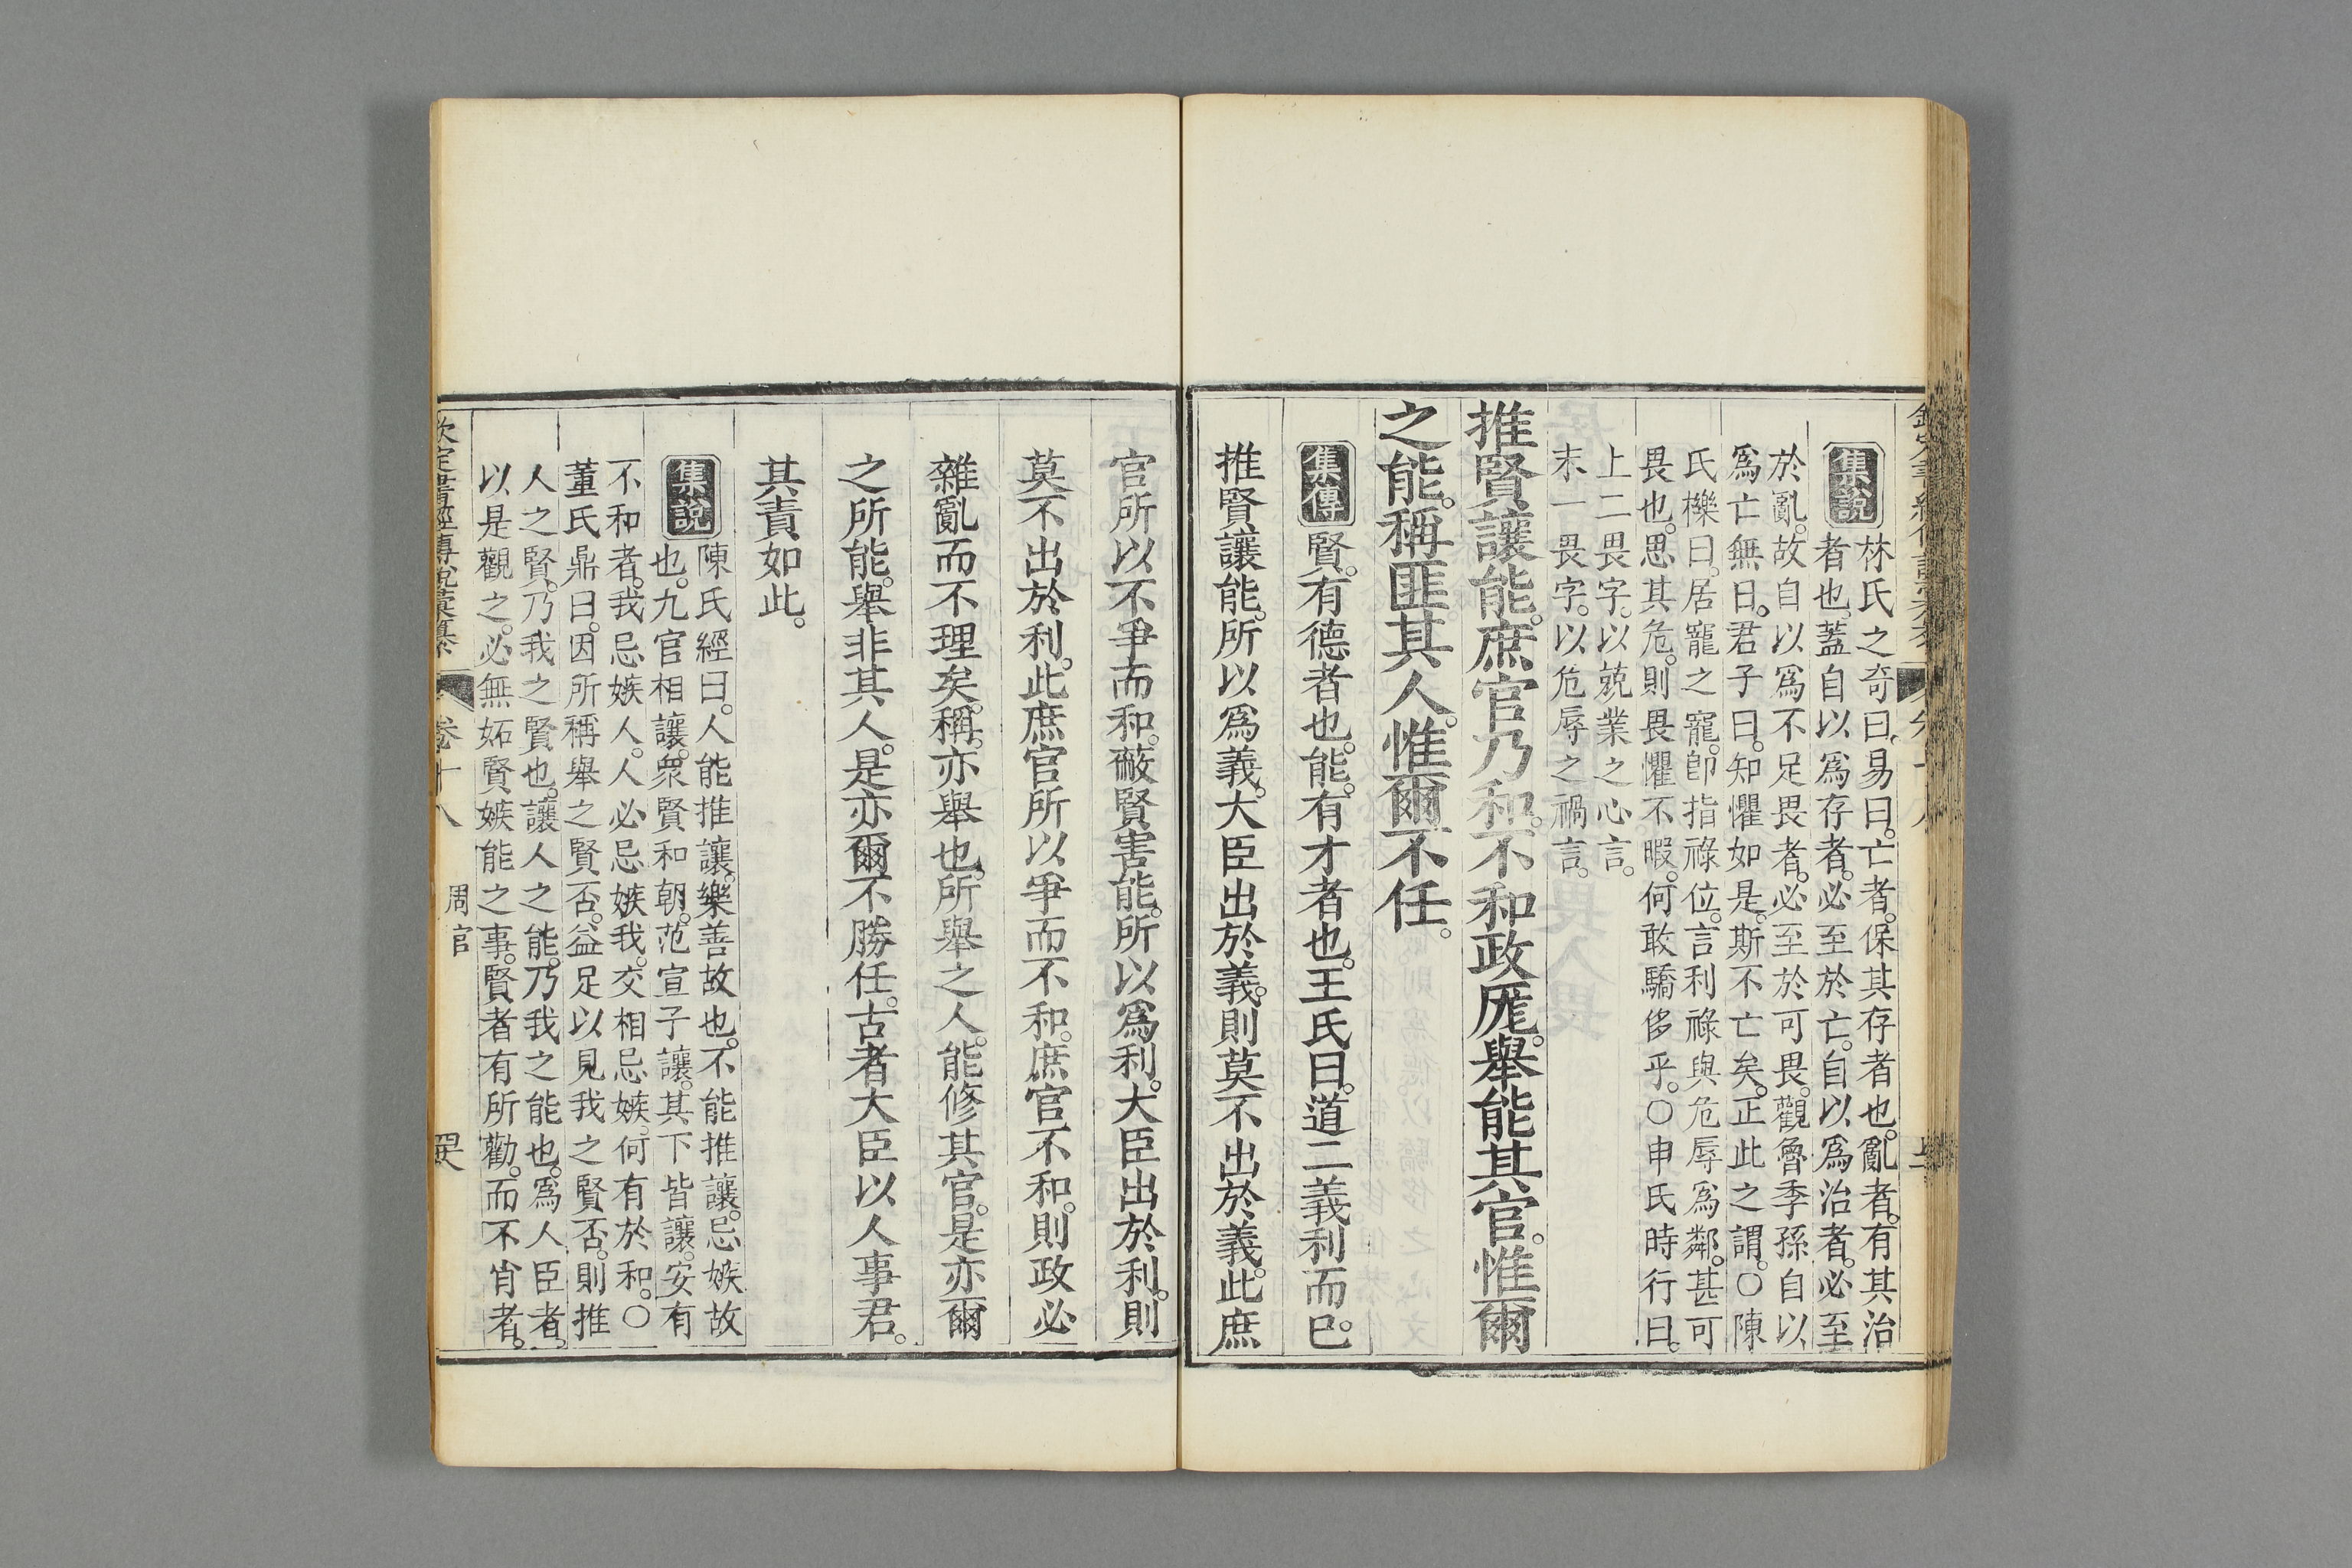 集說
林氏之奇曰。易曰。亡者。保其存者也。亂者。有其治
者也。蓋自以爲存者。必至於亡。自以爲治者。必至
於亂。故自以爲不足畏者。必至於可畏。觀魯季孫自以
爲亡無日。君子曰。知懼如是。斯不亡矣。正此之謂。○陳
氏櫟曰。居寵之寵。卽指祿位。言利祿與危辱爲鄰。甚可
畏也。思其危。則畏懼不暇。何敢驕侈乎。○申氏時行曰。
上二畏字。以兢業之心言。
末一畏字。以危辱之禍言。
推賢讓能。庶官乃和。不和政厖。舉能其官。惟爾
之能。稱匪其人。惟爾不任。
集傳
賢。有德者也。能。有才者也。王氏曰。道二義利而已。
推賢讓能。所以爲義。大臣出於義。則莫不出於義。此庶
官所以不爭而和。蔽賢害能。所以爲利。大臣出於利。則
莫不出於利。此庶官所以爭而不和。庶官不和。則政必
雜亂而不理矣。稱。亦舉也。所舉之人。能修其官。是亦爾
之所能。舉非其人。是亦爾不勝任。古者大臣以人事君。
其責如此。
集說
陳氏經曰。人能推讓。樂善故也。不能推讓。忌嫉故
也。九官相讓。衆賢和朝。范宣子讓。其下皆讓。安有
不和者。我忌嫉人。人必忌嫉我。交相忌嫉。何有於和。○
董氏鼎曰。因所稱舉之賢否。益足以見我之賢否。則推
人之賢。乃我之賢也。讓人之能。乃我之能也。爲人臣者。
以是觀之。必無妬賢嫉能之事。賢者有所勸。而不肖者。
欽定書經傳說彙纂
卷十八
周官